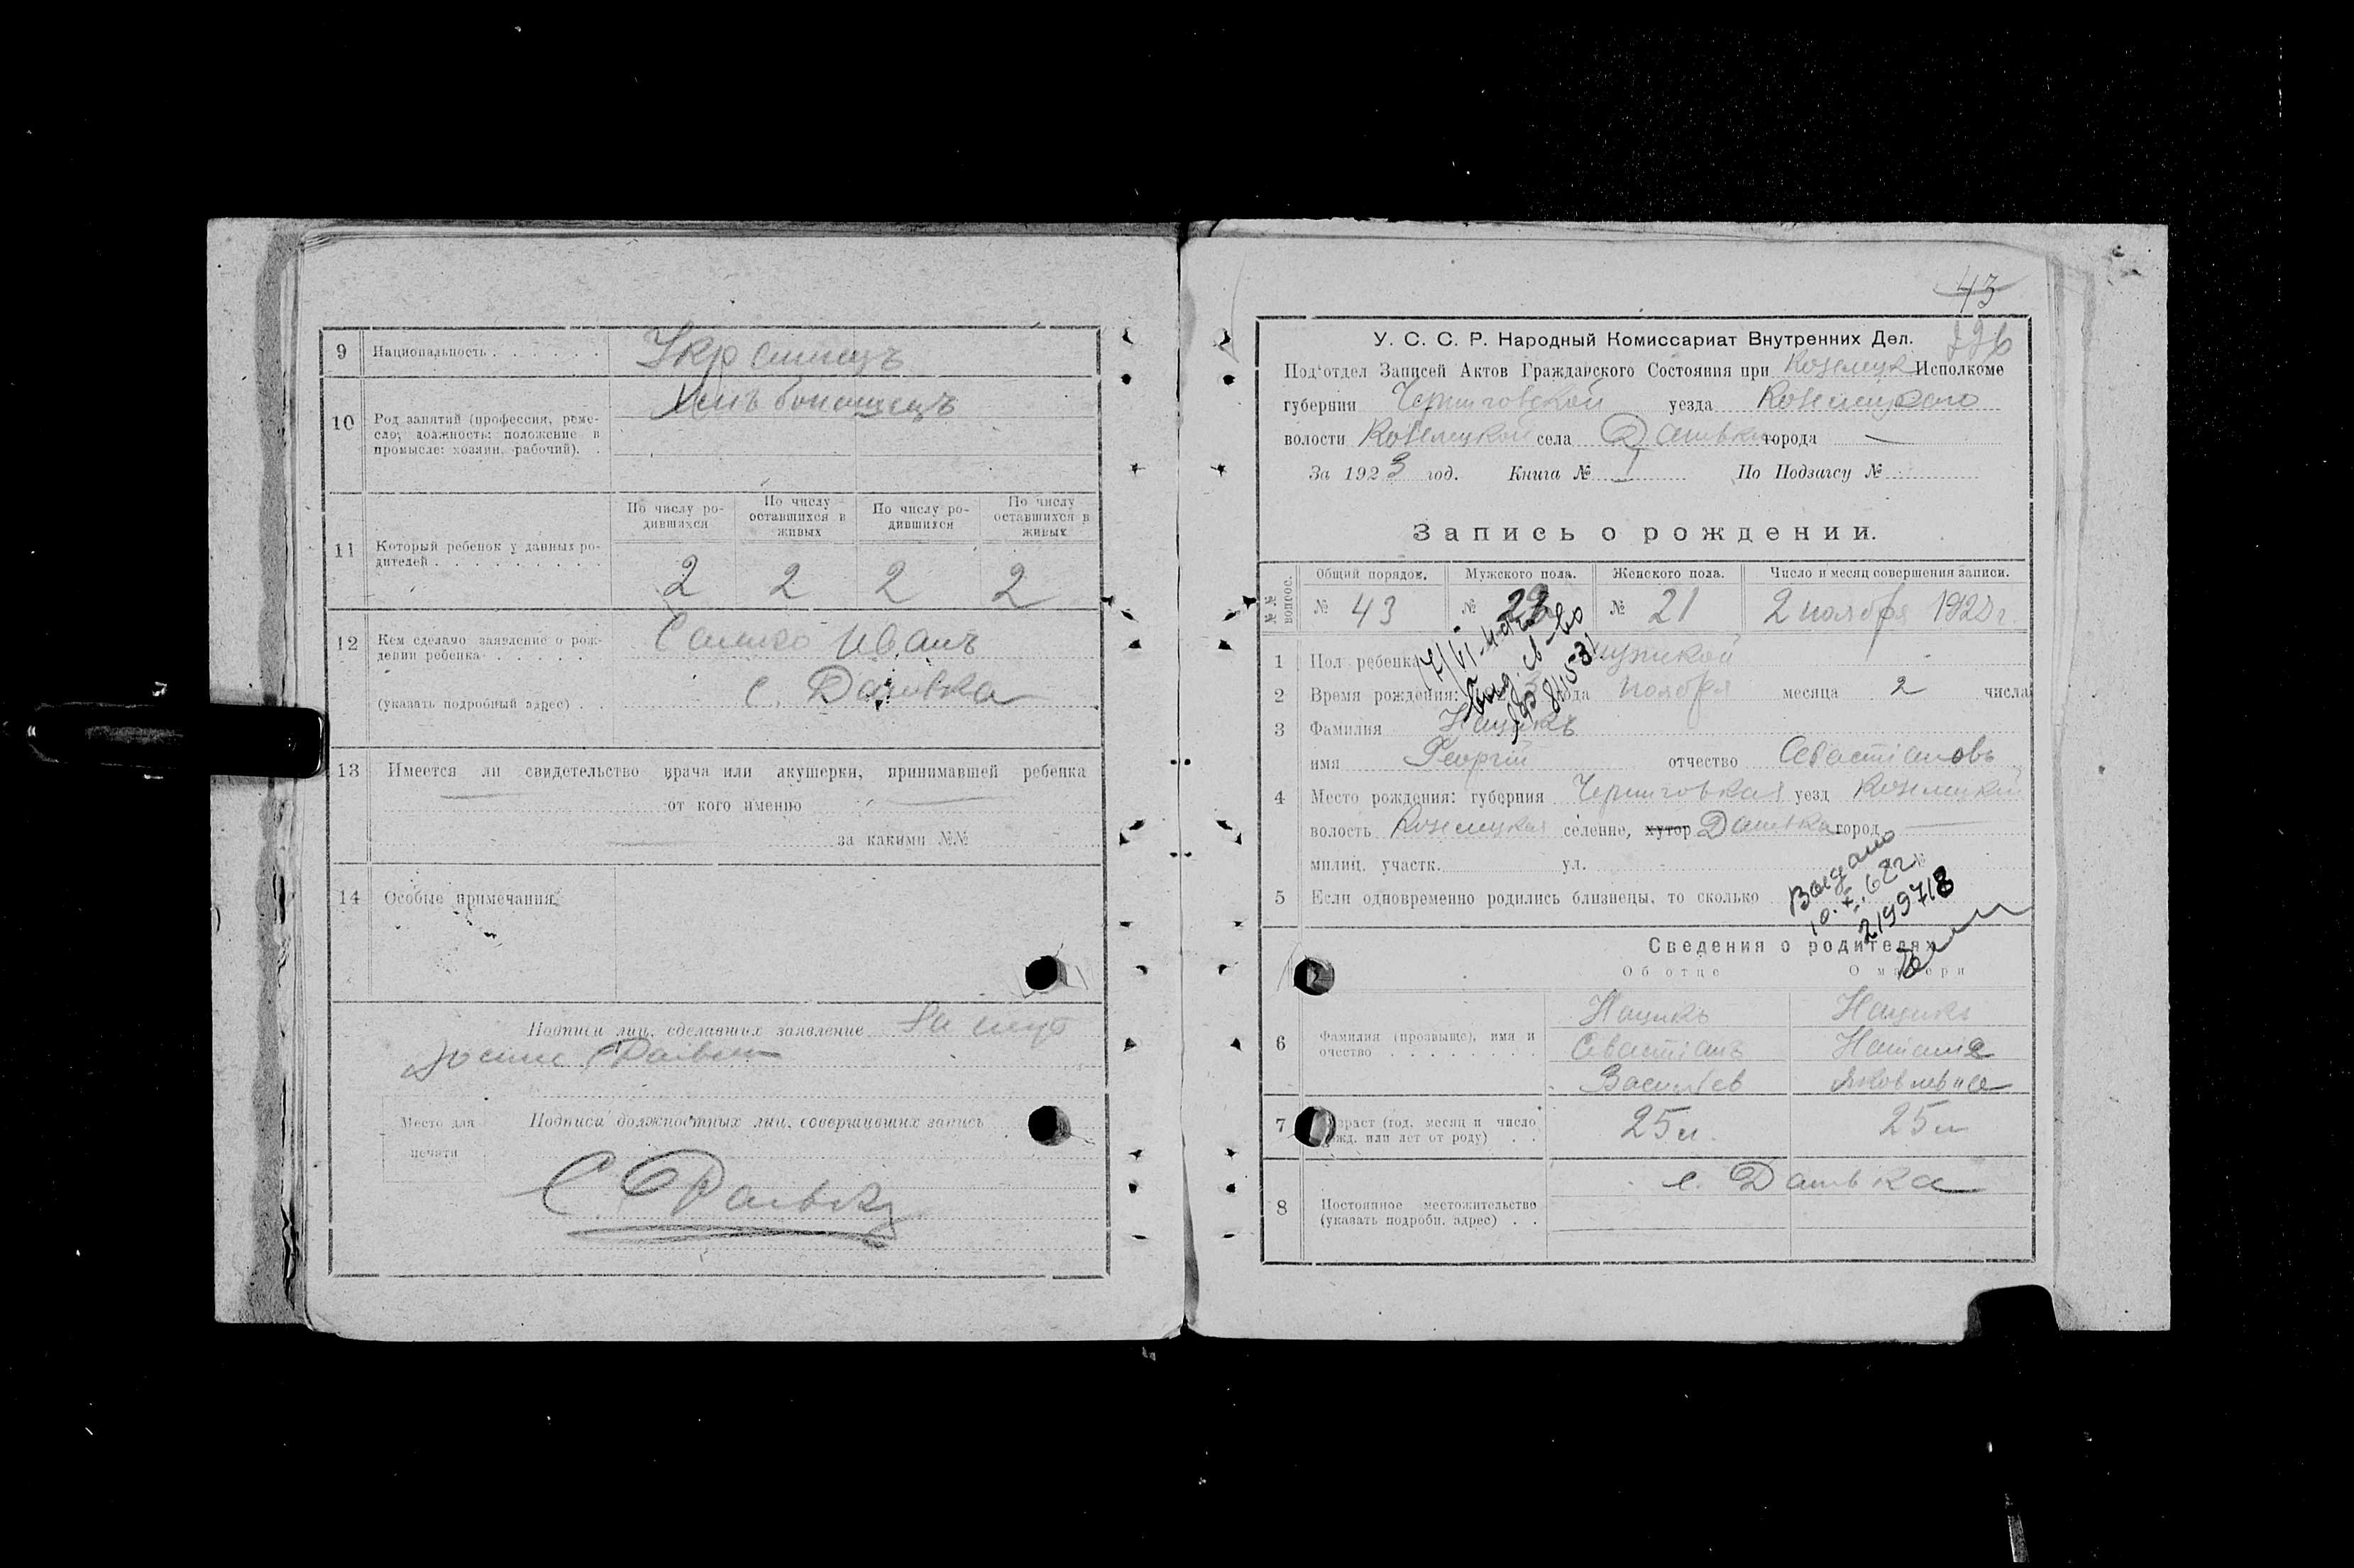 9 Национальность . . . . . . Украинецъ
10 Род занятий (профессия, ремесло; должность: положение в промысле: хозяин. рабочий). .
Хлѣбопашецъ
11 Который ребенок у данных родителей . . . . . . . . .
По числу родившихся По числу оставшихся в живых По числу родившихся По числу оставшихся в живых
2 2 2 2
12 Кем сделано заявление о рождении ребенка . . . . .
Иванъ
(указать подробный адрес) . .
с. Данивка
13 Имеется ли свидетельство врача или акушерки, принимавшей ребенка
от кого именно
за какими №№
14 Особые примечания
Подписи лиц, сделавших заявление
Место для печати
Подписи должностных лиц, совершивших запись
43
У. С. С. Р. Народный Комиссариат Внутренних Дел.
Под'отдел Записей Актов Гражданского Состояния при Козелецк Исполкоме
губернии Черниговской уезда Козелецкого
волости Козелецкой села Данивка города —
За 1923 год. Книга № 1 По Подзагсу №
Запись о рождении.
№№ вопрос.
Общий порядок. Мужского пола. Женского пола. Число и месяц совершения записи.
№ 43 № 22 № 21 2 ноября 1923 г.
1 Пол ребенка мужской
2 Время рождения: года ноября месяца 2 числа
3 Фамилия Нацикъ
имя Георгій отчество Севастіановъ
4 Место рождения: губерния Черниговская уезд Козелецкий
волость Козелецкая селение, хутор Данивка город —
милиц. участк. ул.
5 Если одновременно родились близнецы, то сколько
Выдано
10.X.62 г.
2199718
Сведения о родителях
Об отце О матери
6 Фамилия (прозвыще), имя и очество . . . . . . . .
Нацикъ Нацикъ
Севастіанъ Наталия
Васильев Яковлевна
7 Возраст (год, месяц и число рожд. или лет от роду) . .
25 л. 25 л
8 Постоянное местожительство (указать подробн. адрес) . .
с. Данивка